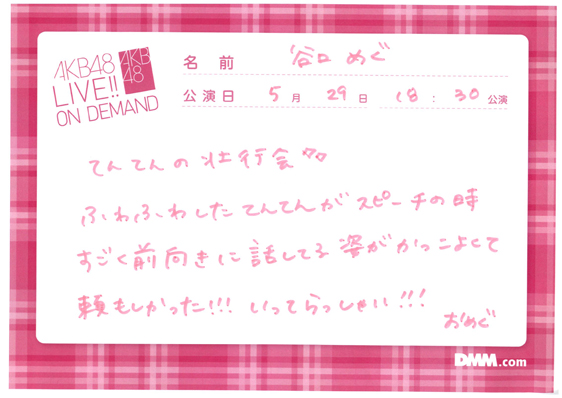 AKB48
LIVE!!
ON DEMAND
AKB
48
名前 谷口 めぐ
公演日 5月 29日 18:30 公演
てんてんの壮行会
ふわふわしたてんてんがスピーチの時
すごく前向きに話してる姿がかっこよくて
頼もしかった!!! いってらっしゃい!!!
おめぐ
DMM.com